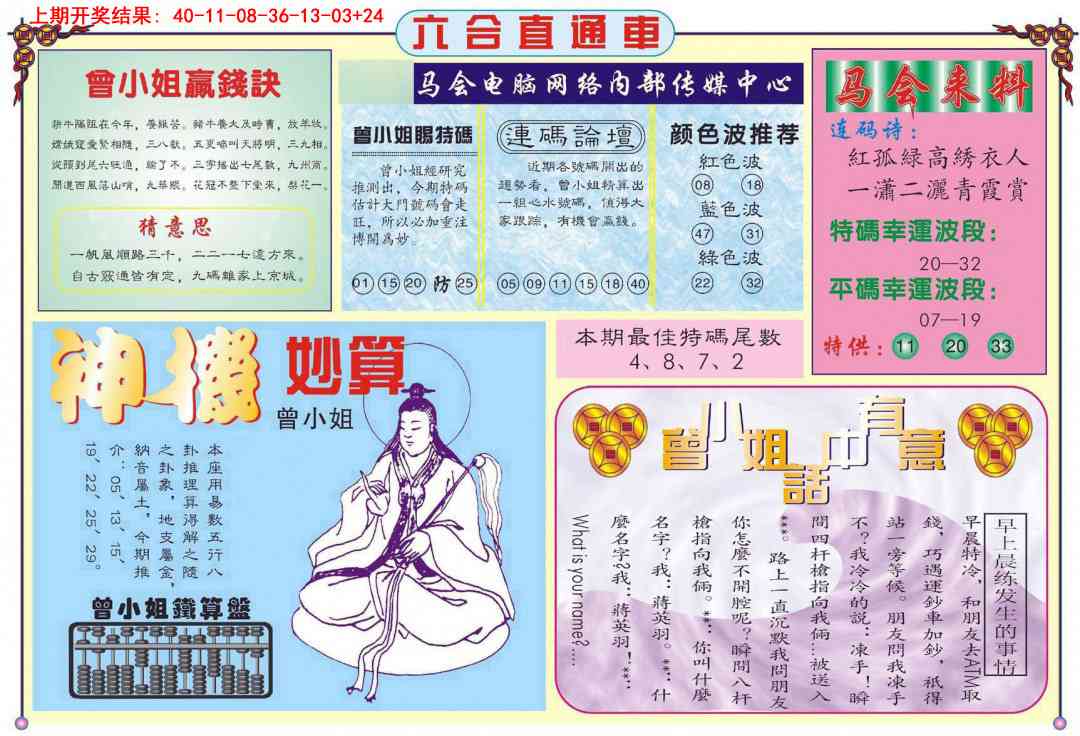 上期开奖结果：40-11-08-36-13-03+24
六合直通車
曾小姐贏錢訣
三九相。
九州商。
猜意思
一帆風順路三千，二二一七遠方來。
自古窮通皆有定，九碼離家上京城。
马会电脑网络内部传媒中心
曾小姐賜特碼
曾小姐經研究
推測出，今期特碼
估計大門號碼會走
旺，所以必加重注
博開為妙。
01 15 20 防 25
連碼論壇
近期各號碼開出的
趨勢看，曾小姐精算出
一組心水號碼，值得大
家跟踪，有機會贏錢。
05 09 11 15 18 40
颜色波推荐
紅色波
08 18
藍色波
47 31
綠色波
22 32
马会来料
连码诗：
紅孤緑高綉衣人
一瀟二灑青霞賞
特碼幸運波段：
20—32
平碼幸運波段：
07—19
特供：11 20 33
神機妙算
曾小姐
本座用易數五行八
卦推理算得解之隨
之卦象，地支屬金，
納音屬土，今期推
介：05、13、15、
19、22、25、29。
曾小姐鐵算盤
本期最佳特碼尾數
4、8、7、2
曾小姐話中有意
早上晨练发生的事情
早晨特冷，和朋友去ATM取
錢，巧遇運鈔車加鈔，祇得
站一旁等候。朋友問我凍手
不？我冷冷的説：凍手！瞬
間四杆槍指向我倆…被送入
***。路上一直沉默我問朋友
你怎麼不開腔呢？瞬間八杆
槍指向我倆。**：你叫什麼
名字？我：蔣英羽。**：什
麼名字？我：蔣英羽！**：
What is your name?....